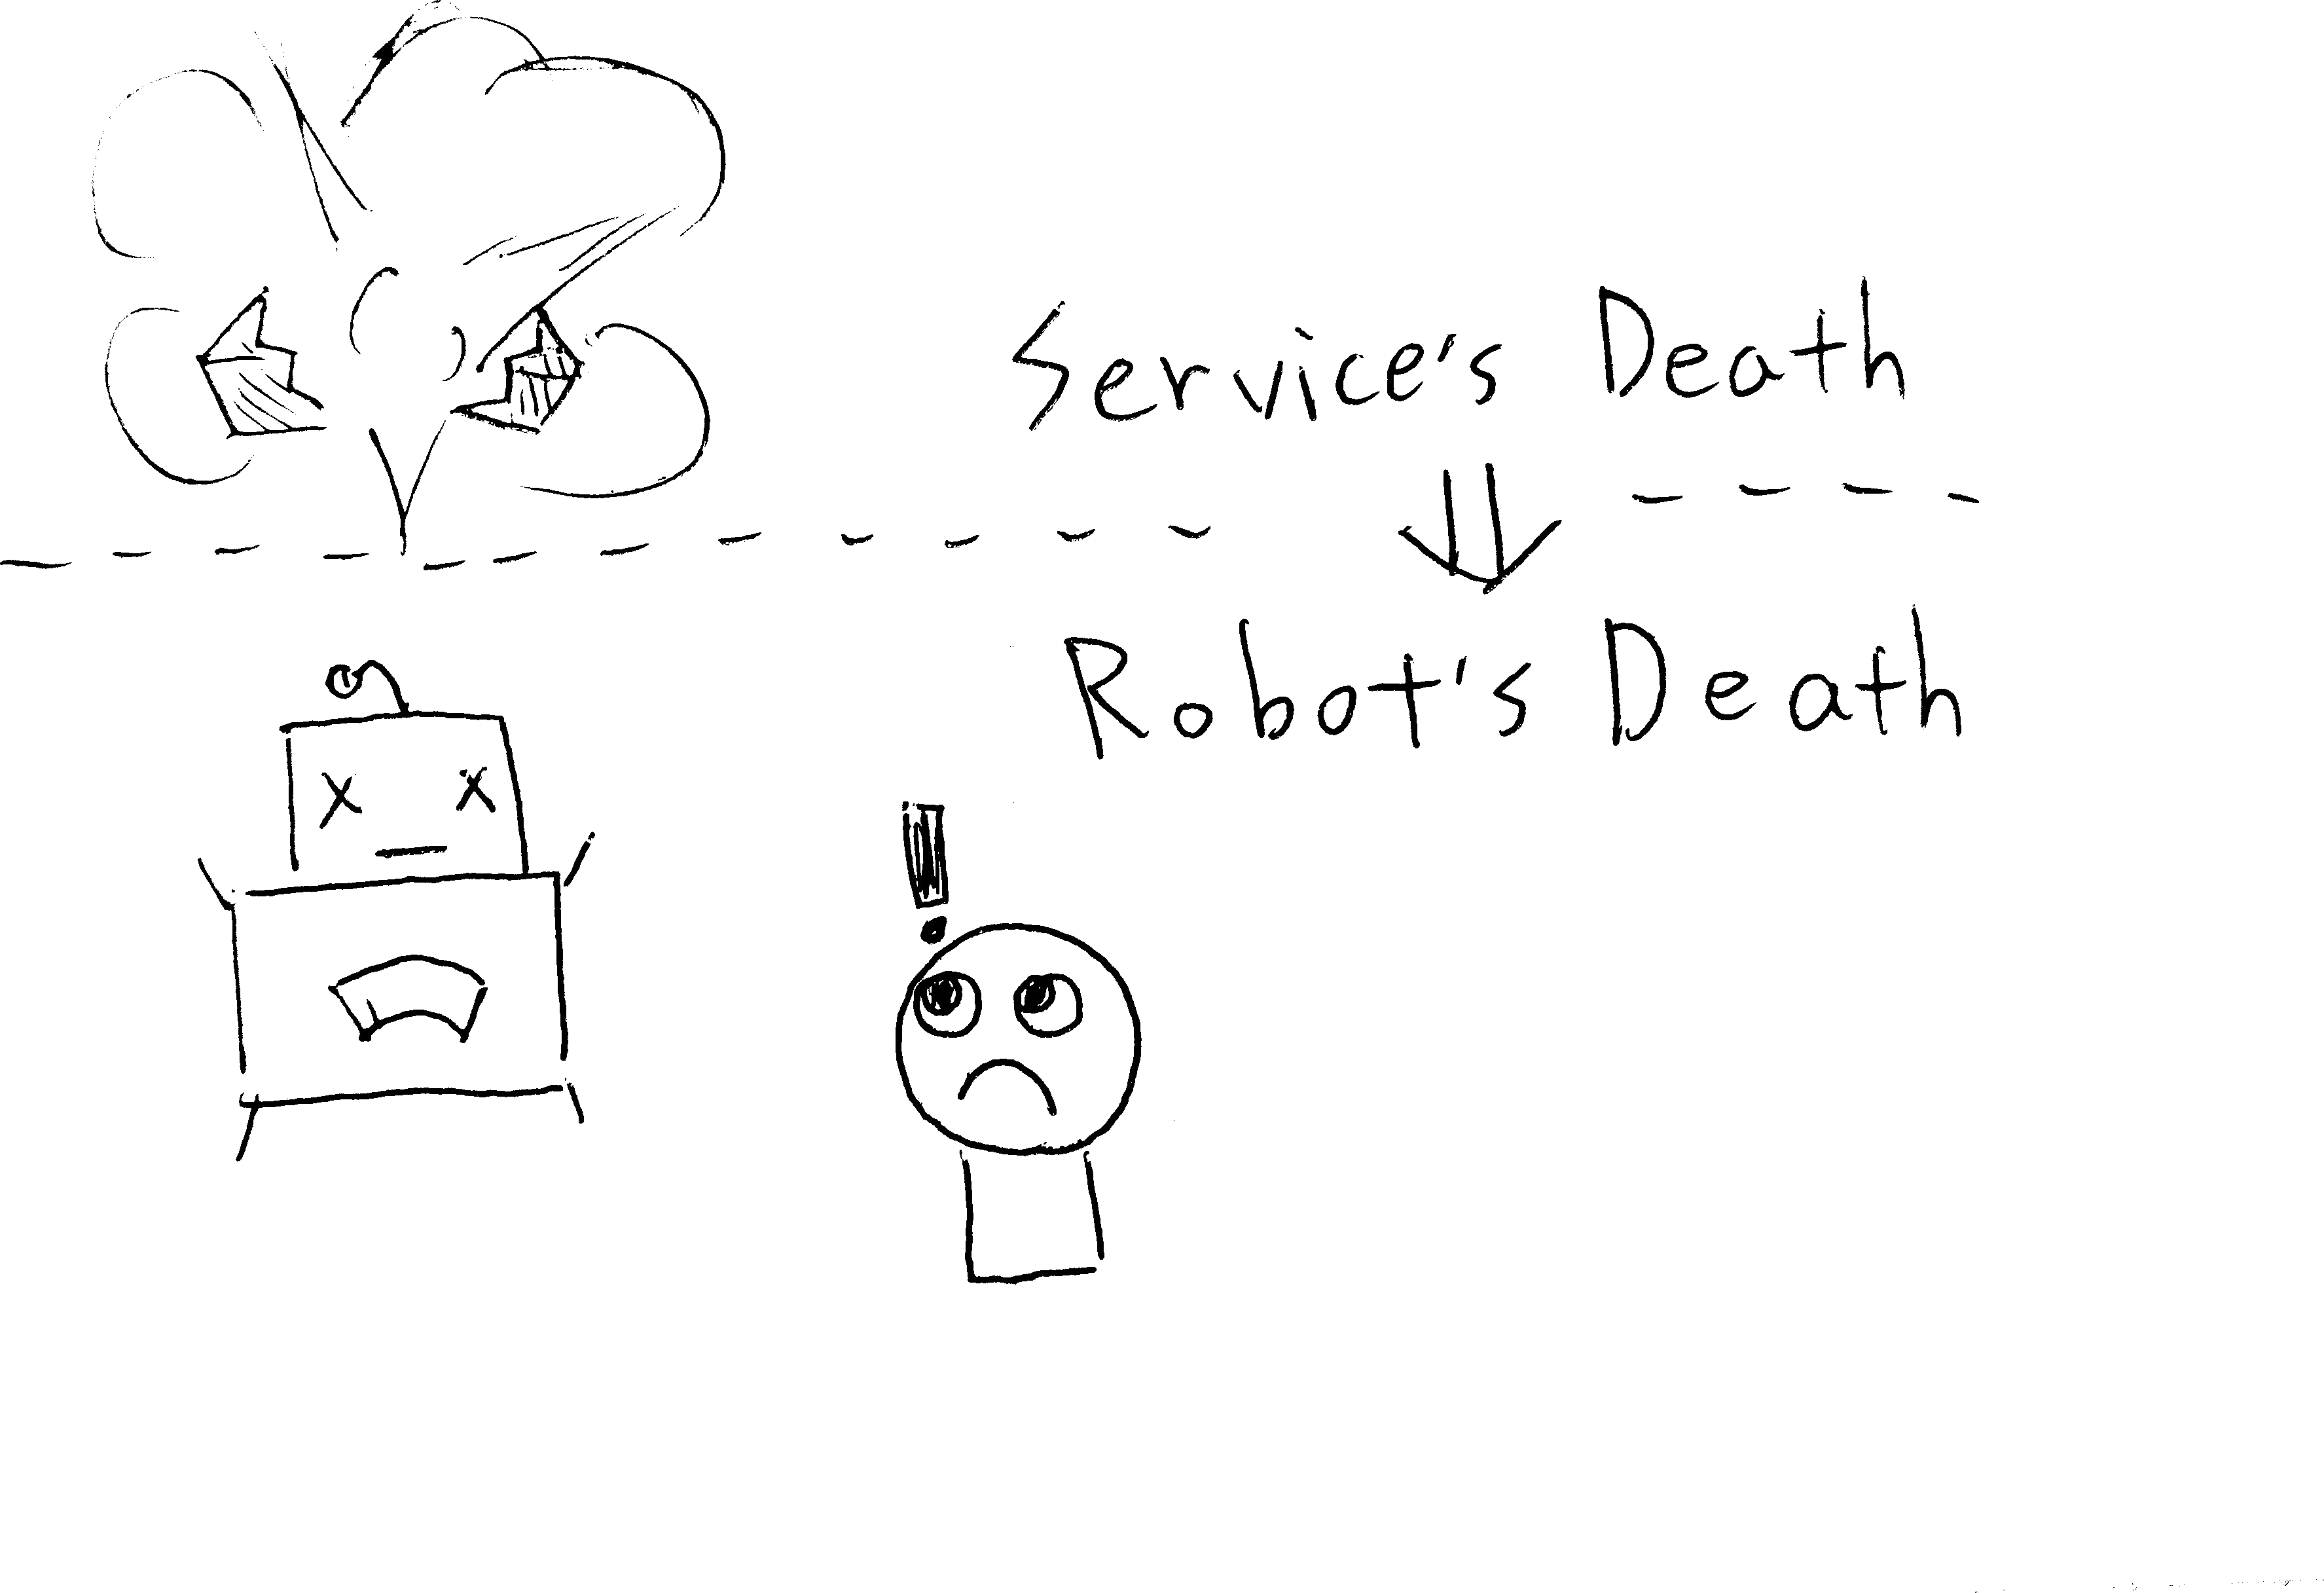 Service's Death
Robot's Death